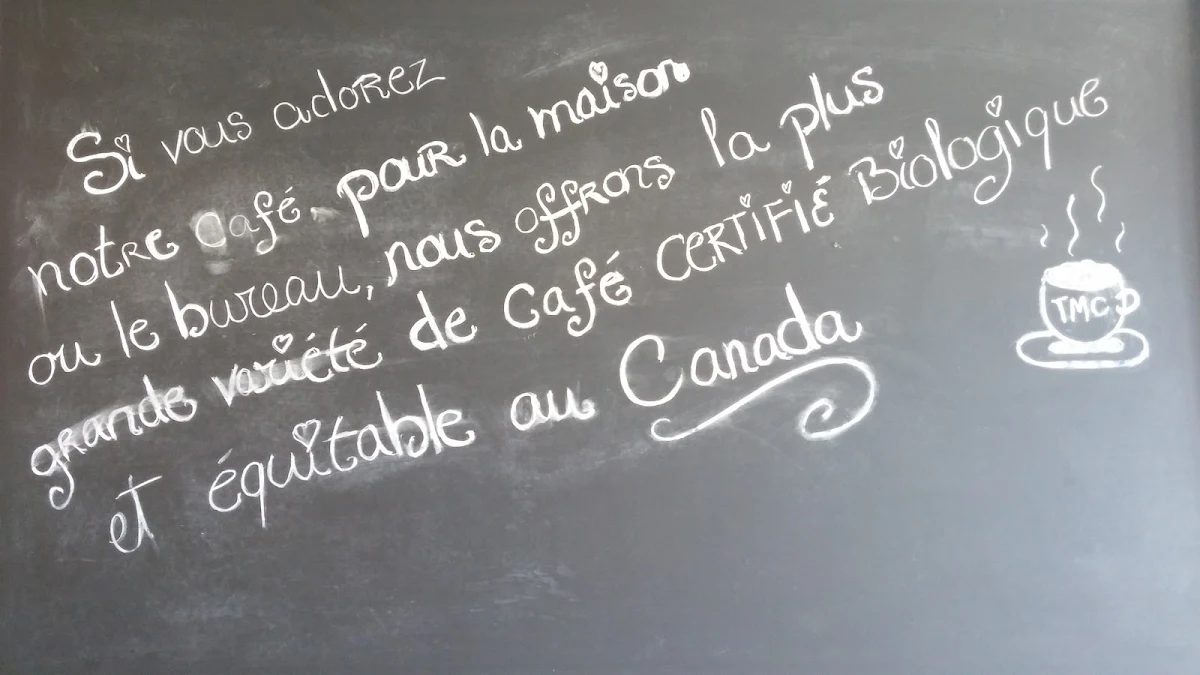 Si vous adorez
notre Café pour la maison
ou le bureau, nous offrons la plus
grande variété de Café CERTIFIÉ Biologique
et équitable au Canada
TMC